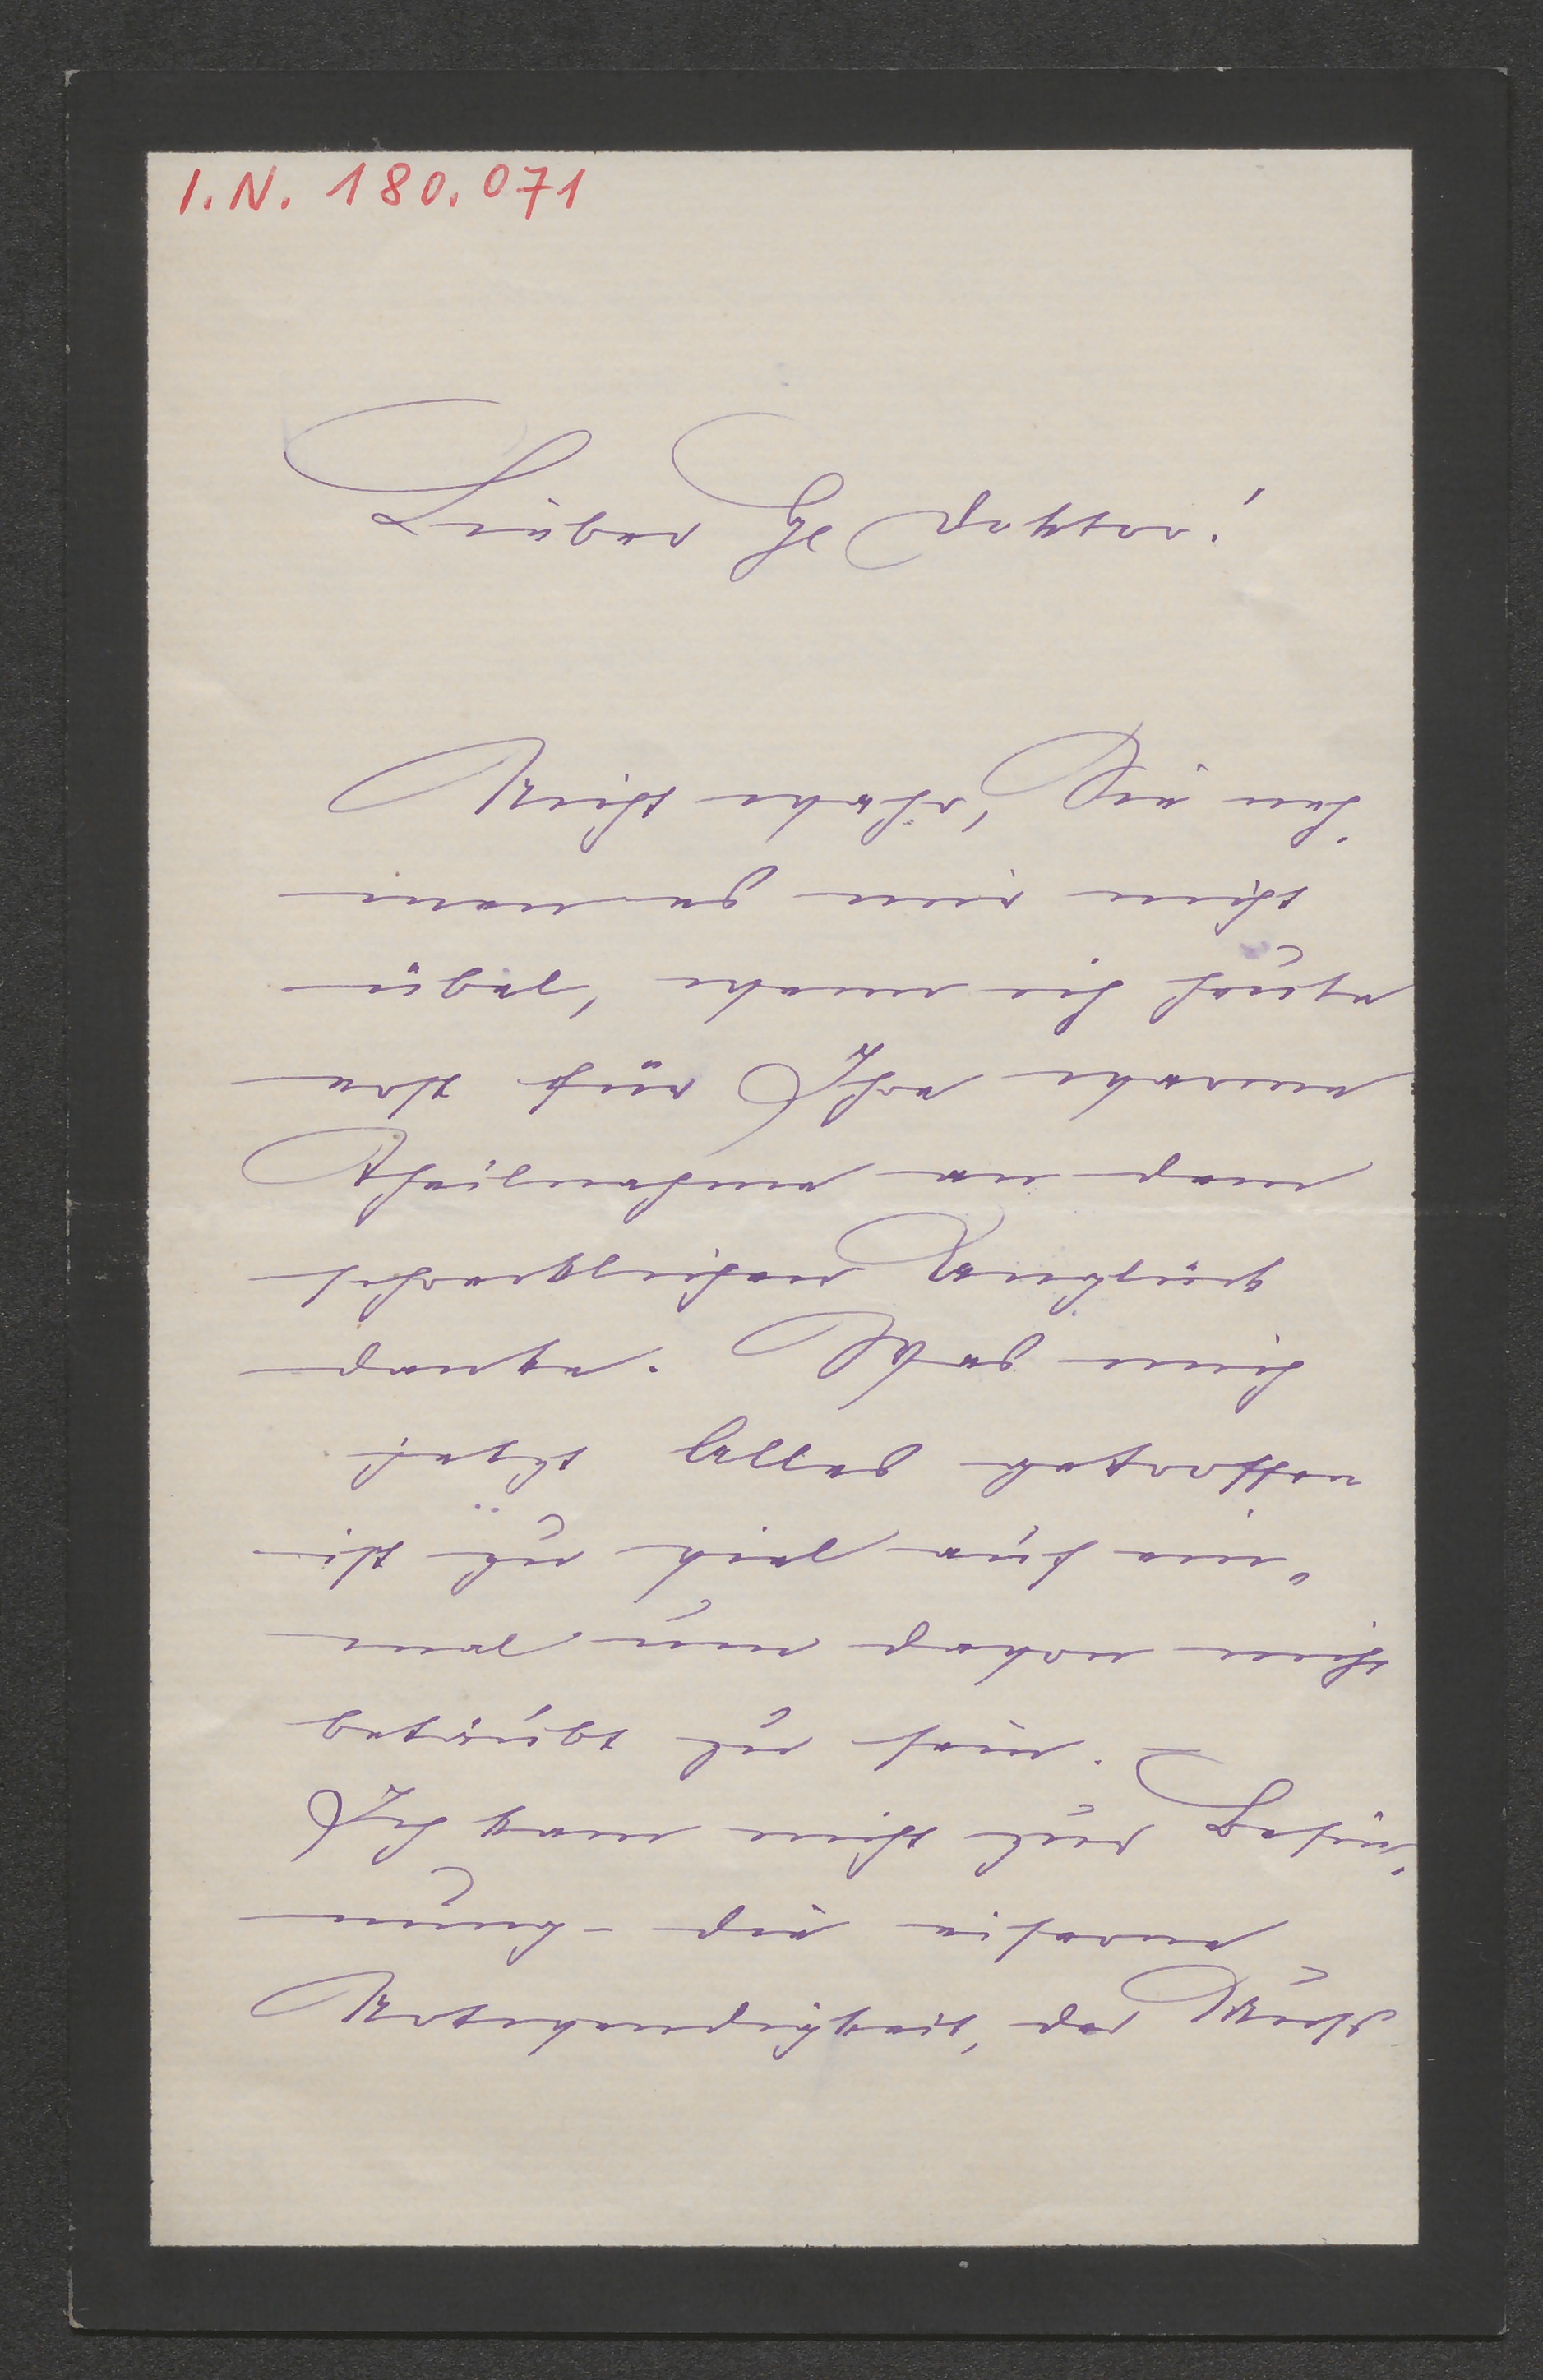 I.N. 180.071
Lieber H Doktor!
Nicht wahr, Sie neh
men es mir nicht
übel, wenn ich heute
erst für Ihre warme
Theilnahme an dem
schrecklichen Unglück
danke. Was mich
jetzt Alles getroffen
ist zu viel auf ein¬
mal um davon nicht
betäubt zu sein. –
Ich kam nicht zur Besin¬
nung – die eiserne
Notwendigkeit, der